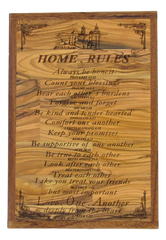 HOME RULES
Always be honest
Count your blessings
Bear each other's burdens
Forgive and forget
Be kind and tender hearted
Comfort one another
Keep your promises
Be supportive of one another
Be true to each other
Look after each other
Treat each other
Like you treat your friends
but most important
Love One Another
deeply from the heart